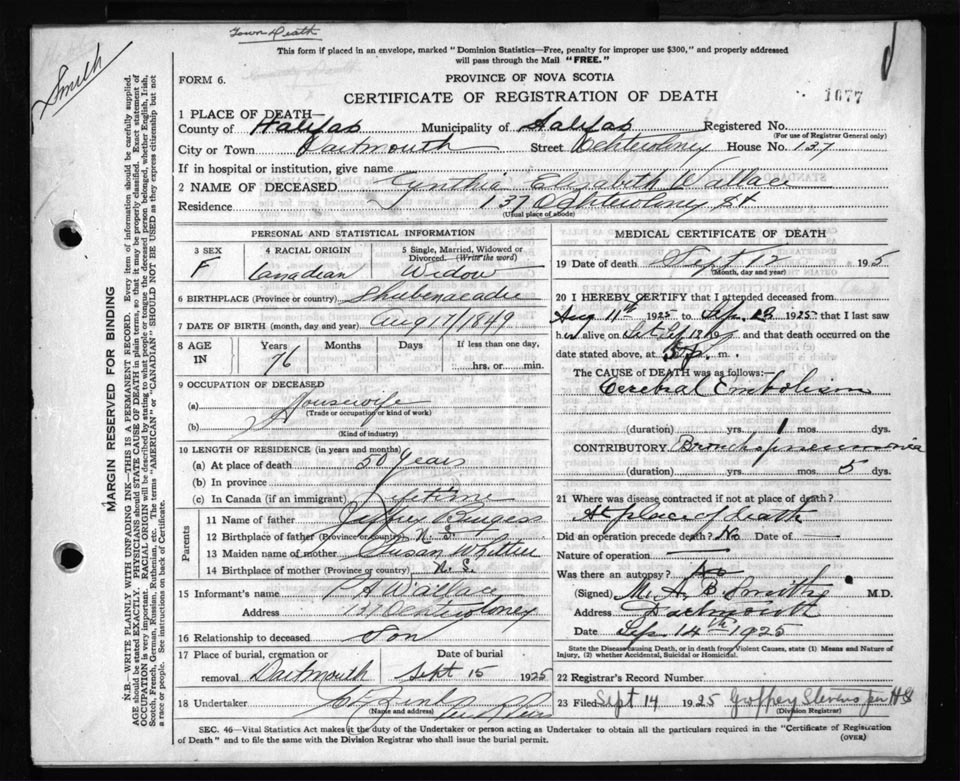 Town Death
This form if placed in an envelope, marked "Dominion Statistics—Free, penalty for improper use $300," and properly addressed
will pass through the Mail "FREE."
Smith
FORM 6.
PROVINCE OF NOVA SCOTIA
CERTIFICATE OF REGISTRATION OF DEATH
1077
1 PLACE OF DEATH—
County of Halifax Municipality of Halifax Registered No.
(For use of Registrar General only)
City or Town Dartmouth Street Ochterloney House No. 137
If in hospital or institution, give name
2 NAME OF DECEASED Cynthia Elizabeth Wallace
Residence 137 Ochterloney St
(Usual place of abode)
PERSONAL AND STATISTICAL INFORMATION
3 SEX F
4 RACIAL ORIGIN Canadian
5 Single, Married, Widowed or Divorced. (Write the word) Widow
6 BIRTHPLACE (Province or country) Shubenacadie
7 DATE OF BIRTH (month, day and year) Aug 17/1849
8 AGE IN Years 76 Months Days If less than one day, hrs. or min.
9 OCCUPATION OF DECEASED
(a) Housewife
(Trade or occupation or kind of work)
(b)
(Kind of industry)
10 LENGTH OF RESIDENCE (in years and months)
(a) At place of death 50 Years
(b) In province
(c) In Canada (if an immigrant) Lifetime
Parents
11 Name of father Burgess
12 Birthplace of father (Province or country) N. S.
13 Maiden name of mother Susan Whittier
14 Birthplace of mother (Province or country) N. S.
15 Informant's name P A Wallace
Address 137 Ochterloney
16 Relationship to deceased Son
17 Place of burial, cremation or removal Dartmouth
Date of burial Sept 15 1925
18 Undertaker
(Name and address)
MEDICAL CERTIFICATE OF DEATH
19 Date of death Sept 12 1925
(Month, day and year)
20 I HEREBY CERTIFY that I attended deceased from
Aug 11th 1925 to Sep 1925 that I last saw
her alive on and that death occurred on the
date stated above, at 5 p. m.
The CAUSE of DEATH was as follows:—
Cerebral Embolism
(duration) yrs. 1 mos. dys.
CONTRIBUTORY Bronchopneumonia
(duration) yrs. mos. 5 dys.
21 Where was disease contracted if not at place of death?
At place of death
Did an operation precede death? No Date of —
Nature of operation —
Was there an autopsy? No
(Signed) M. A. B. Smith M.D.
Address Dartmouth
Date Sep 14th 1925
State the Disease causing Death, or in death from Violent Causes, state (1) Means and Nature of
Injury, (2) whether Accidental, Suicidal or Homicidal.
22 Registrar's Record Number
23 Filed Sept 14 1925 Godfrey Stevens per HS
(Division Registrar)
SEC. 46—Vital Statistics Act makes it the duty of the Undertaker or person acting as Undertaker to obtain all the particulars required in the "Certificate of Registration
of Death" and to file the same with the Division Registrar who shall issue the burial permit.
(OVER)
MARGIN RESERVED FOR BINDING
N.B.—WRITE PLAINLY WITH UNFADING INK—THIS IS A PERMANENT RECORD. Every item of information should be carefully supplied.
AGE should be stated EXACTLY. PHYSICIANS should STATE CAUSE OF DEATH in plain terms, so that it may be properly classified. Exact statement of
OCCUPATION is very important. RACIAL ORIGIN will be described by stating to what people or tongue the deceased person belonged, whether English, Irish,
Scotch, French, German, Russian, Ruthenian, etc. The terms "AMERICAN" or "CANADIAN" SHOULD NOT BE USED as they express citizenship but not
a race or people. See instructions on back of Certificate.